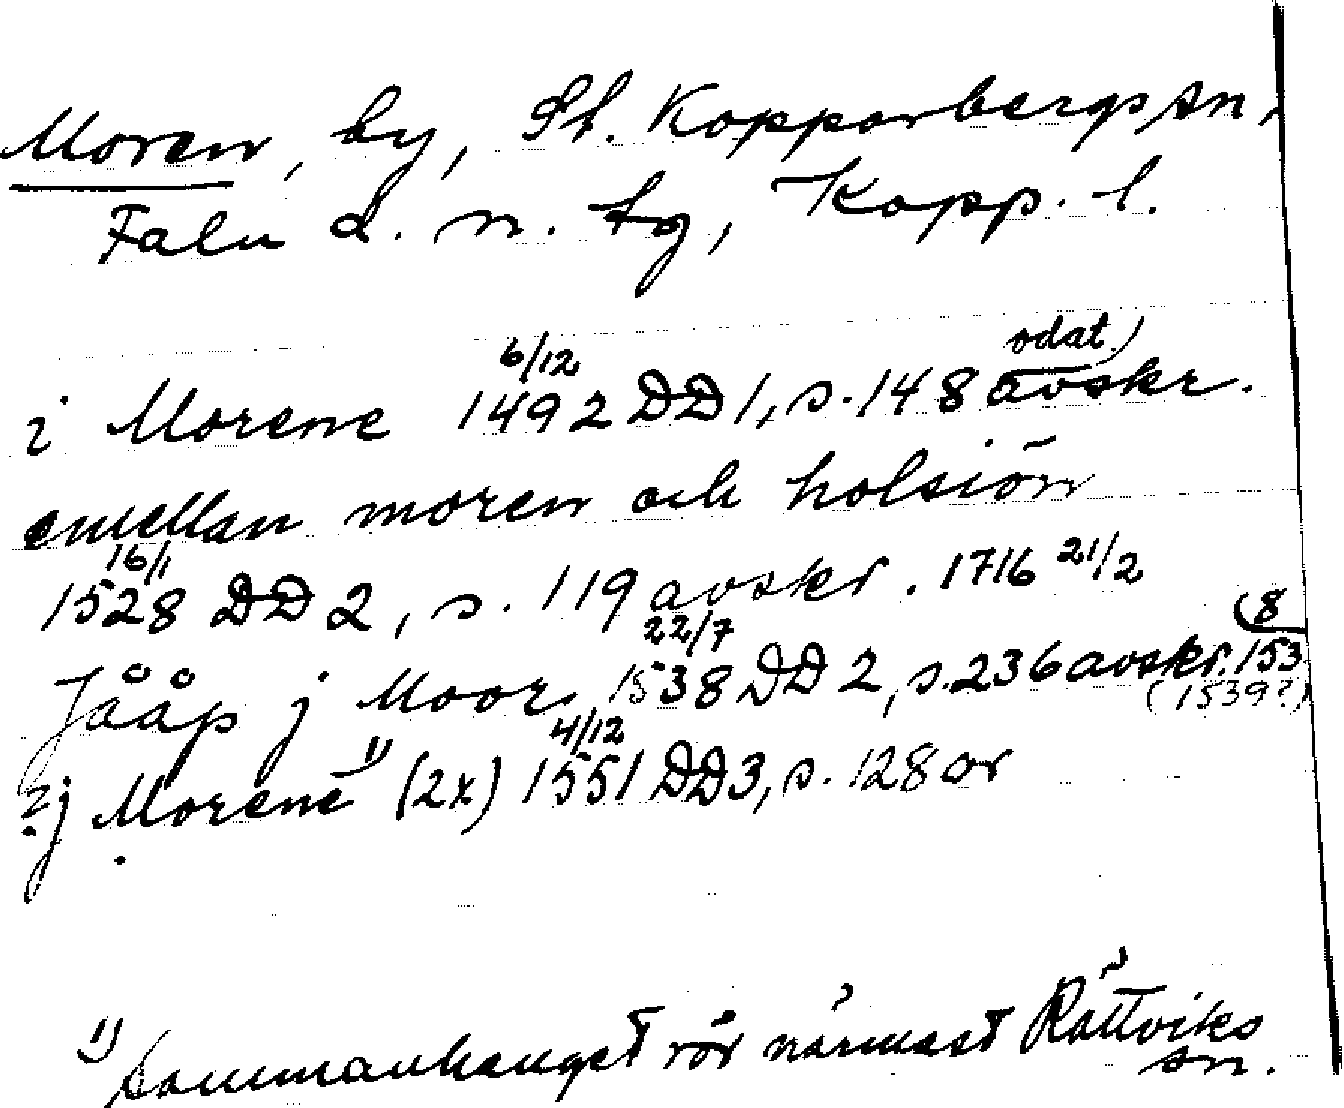 Moren, by, St. Kopparbergs sn,
Falu d. n. tg, Kopp. l.
i Morene 6/12 1492 DD1, s. 148 odat. avskr.
emellan moren och holsiön
16/1 1528 DD 2, s. 119 avskr. 1716 21/2
Jååp j Moor 22/7 1538 DD 2, s. 236 avskr. 1538
(1539?)
? j Morene 1) (2x) 4/12 1551 DD3, s. 128 or
1) Sammanhanget rör närmast Rättviks
sn.